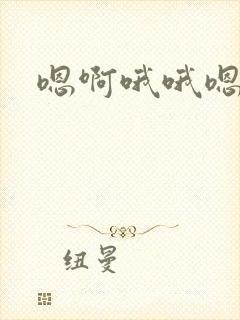 嗯啊哦哦嗯
纽曼